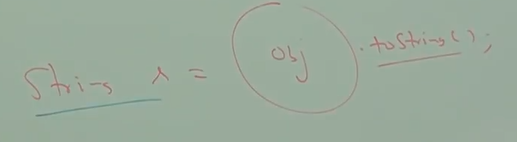 String s = obj.toString();